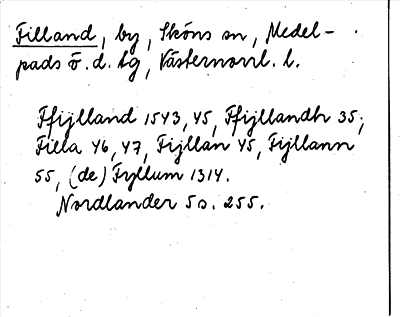 Filland, by, Sköns sn, Medel-
pads ö. d. tg, Västernorrl. l.
Ffijlland 1543, 45, Ffijllandh 35;
Filla 46, 47, Fijllan 45, Fijllann
55, (de) Fyllum 1314.
Nordlander 5 s. 255.